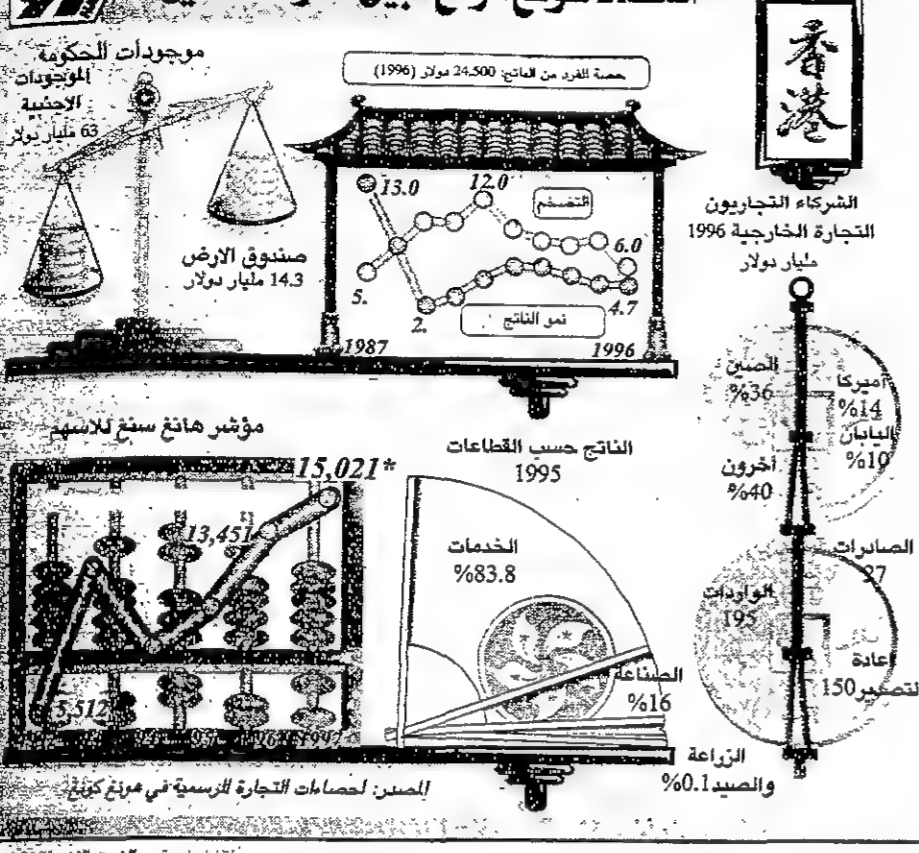 موجودات الحكومة
الموجودات
الاجنبية
63 مليار دولار
صندوق الارض
14.3 مليار دولار
حصة الفرد من الناتج: 24,500 دولار (1996)
13.0
12.0
التضخم
6.0
5.
2.
4.7
نمو الناتج
1987
1996
香港
الشركاء التجاريون
التجارة الخارجية 1996
مليار دولار
الصين
%36
اميركا
%14
اليابان
%10
آخرون
%40
الصادرات
27
الواردات
195
اعادة
التصدير 150
مؤشر هانغ سنغ للاسهم
15,021*
13,451
5,512
الناتج حسب القطاعات
1995
الخدمات
%83.8
الصناعة
%16
الزراعة
والصيد 0.1%
المصدر: احصاءات التجارة الرسمية في هونغ كونغ